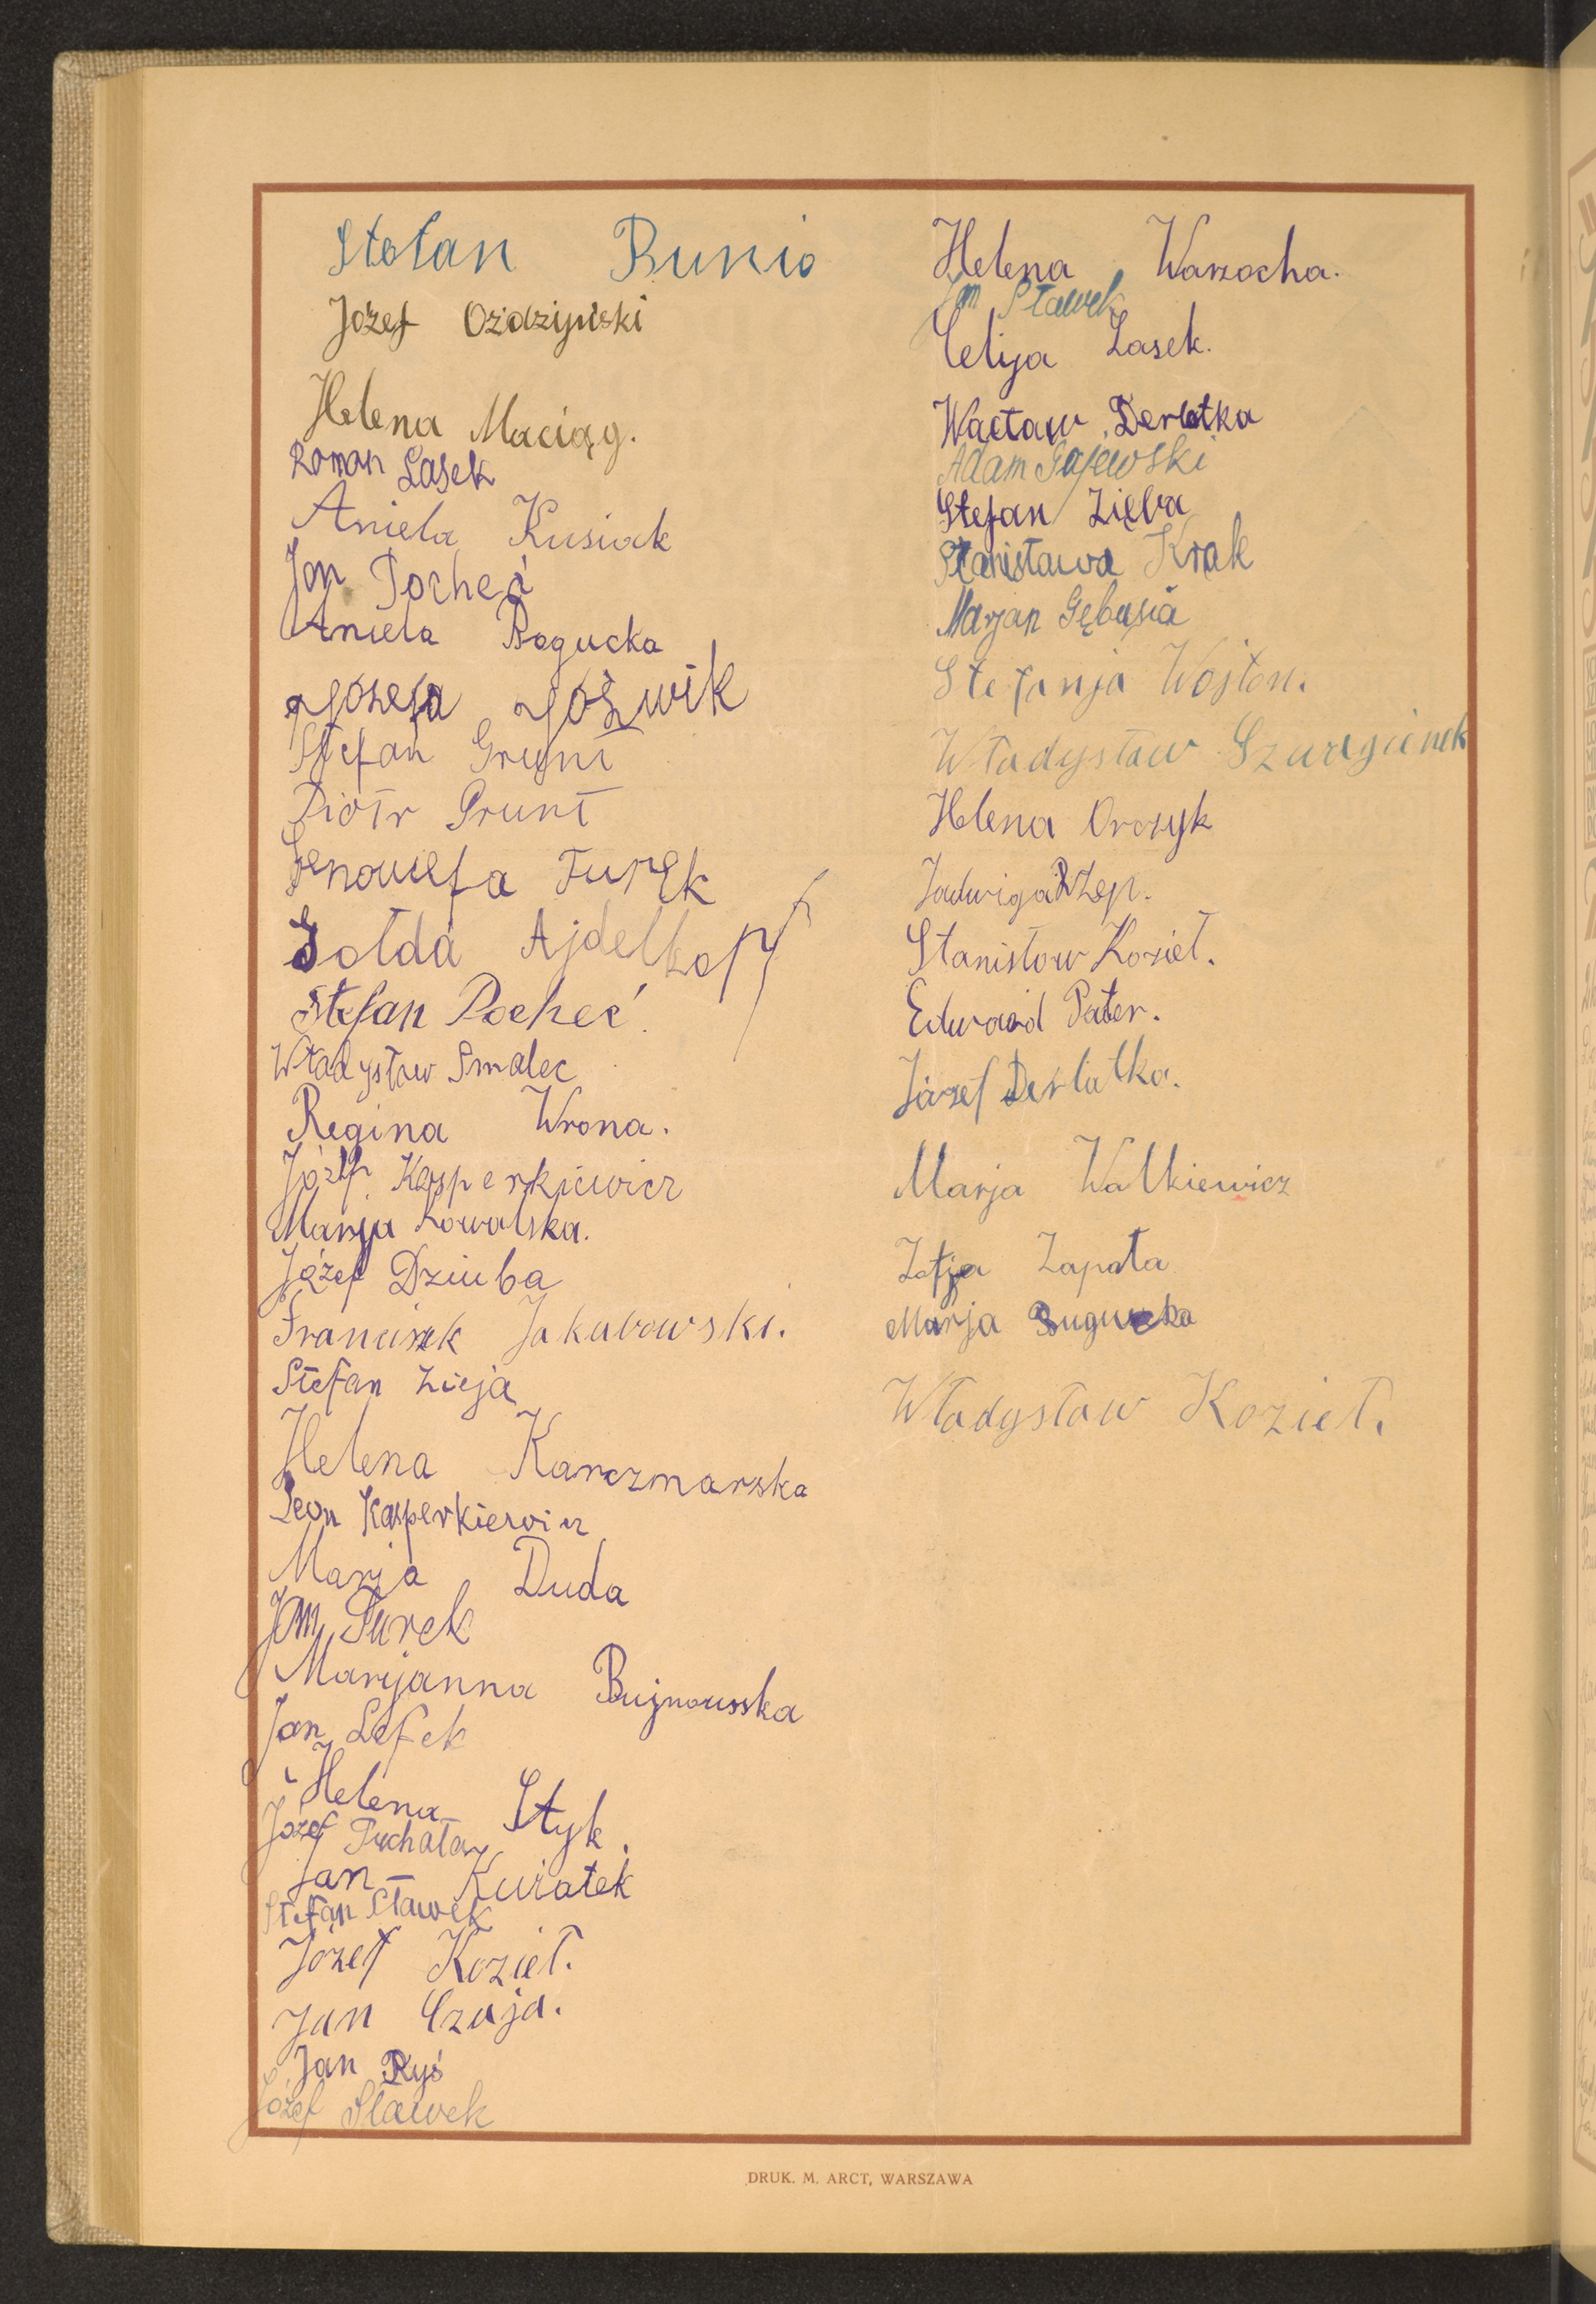 Stefan Bunio
Józef Oździński
Helena Maciąg.
Roman Lasek
Aniela Kusiak
Jan Pocheć
Aniela Bogucka
Józefa Jóźwik
Stefan Grunt
Piotr Grunt
Genowefa Turek
Gołda Ajdelkopf
Stefan Pocheć.
Władysław Smalec
Regina Wrona.
Józef Kasperkiewicz
Marja Kowalska.
Józef Dziuba
Franciszek Jakubowski.
Stefan Zieja
Helena Karczmarska
Leon Kasperkiewicz
Marja Duda
Jan Turek
Maryjanna Bujnowska
Jan Lefek
Helena Styk.
Józef Puchała
Jan - Kwiatek
Stefan Sławek
Józef Kozieł.
Jan Czaja.
Jan Ryś
Józef Sławek
Helena Warzocha.
Jan Sławek
Celija Lasek.
Wacław Derlatka
Adam Gajewski
Stefan Zięba
Stanisława Krak
Marjan Gębusia
Stefanja Wójton.
Władysław
Helena Orczyk
Jadwiga Rzep.
Stanisław Kozieł.
Edward Pater.
Józef Derlatka.
Marja Walkiewicz
Zofja Zapała
Marja Bugucka
Władysław Kozieł.
DRUK. M. ARCT, WARSZAWA